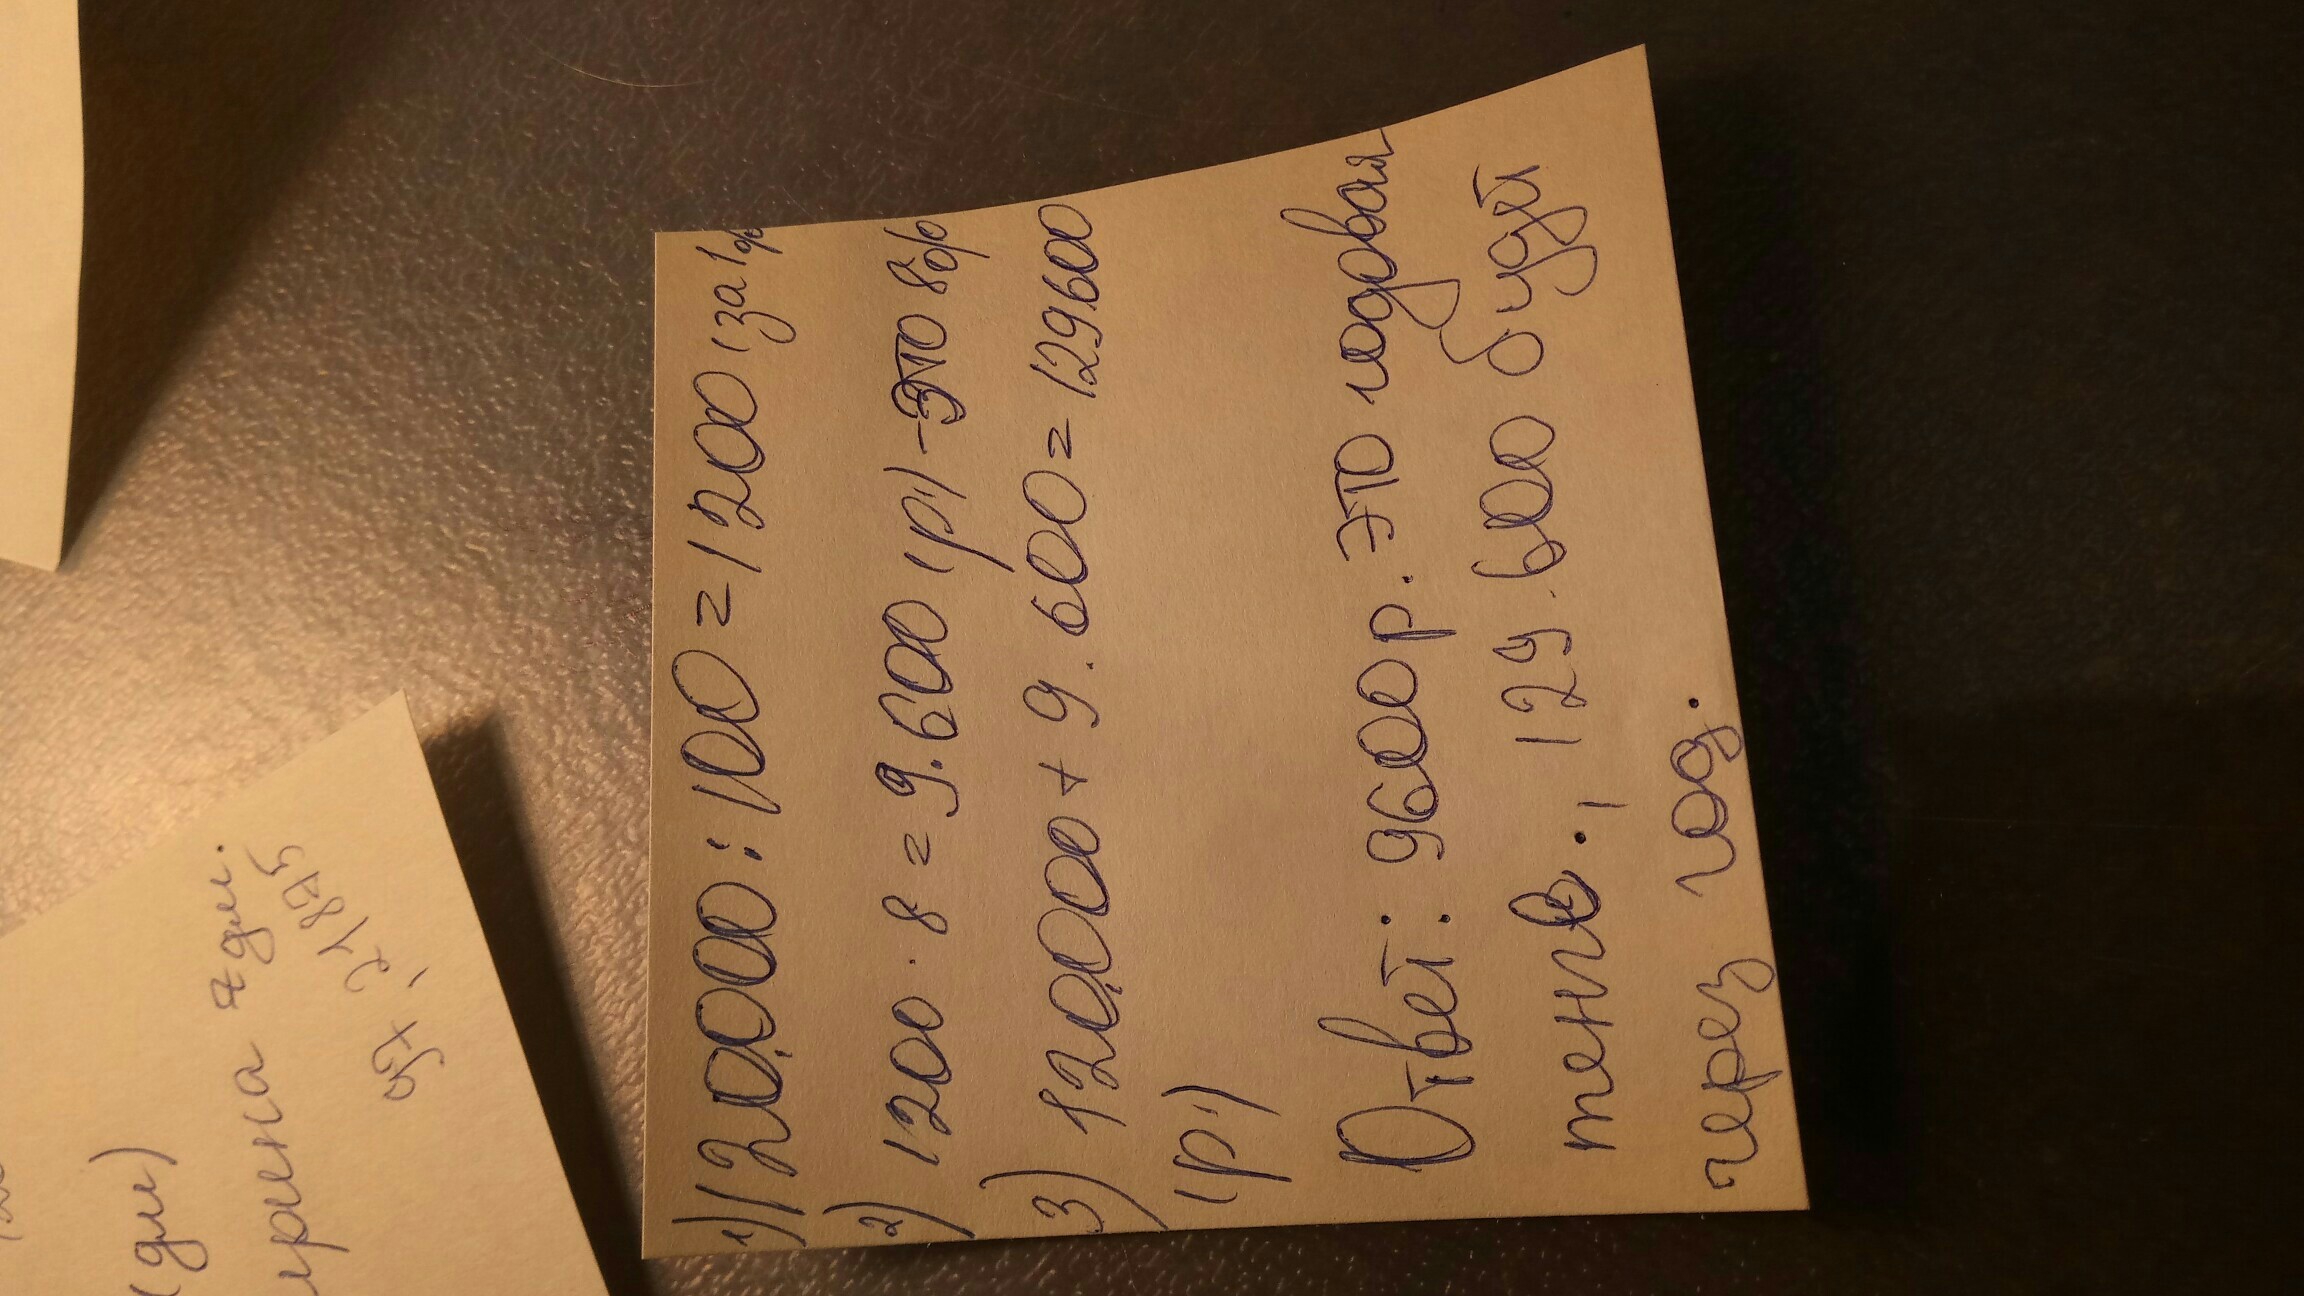 1) 120.000 : 100 = 1200 (за 1%
2) 1200 · 8 = 9.600 (р.) - это 8%
3) 120.000 + 9.600 = 129.600
(р.)
Ответ: 9600р. это годовая
тенге., 129.600 будет
через год.
(дм)
ирина 7 дм.